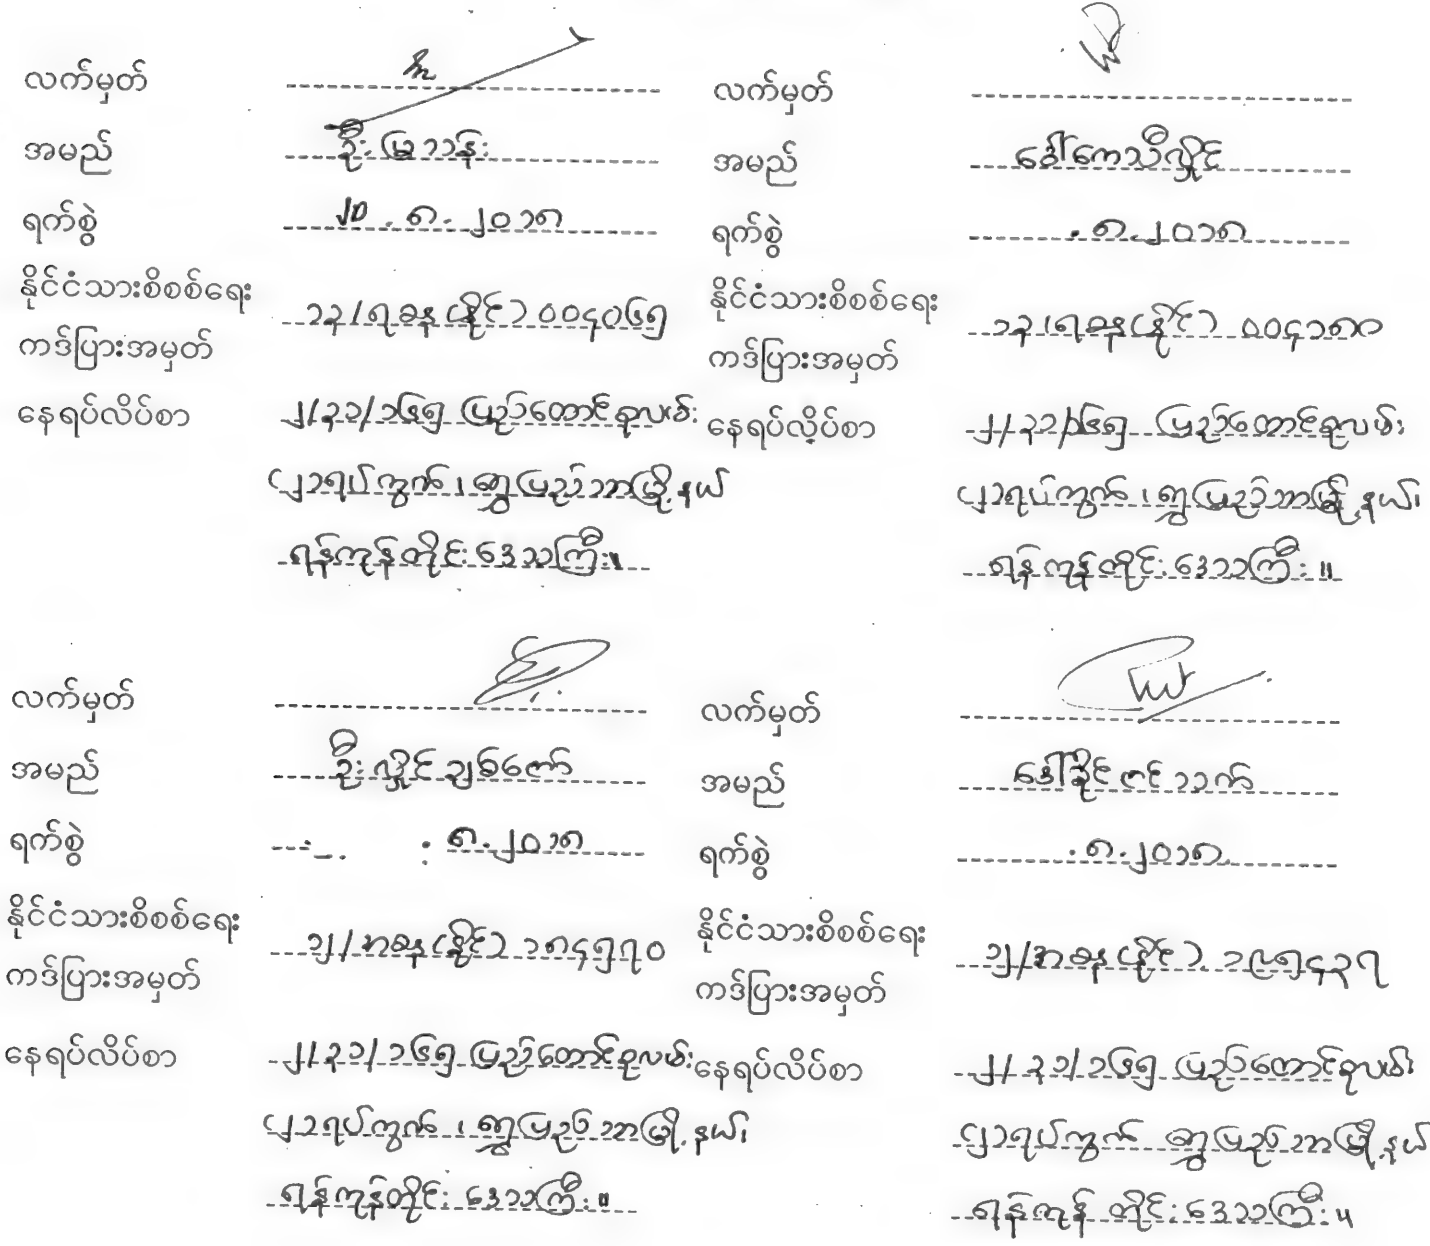 လက်မှတ်
အမည် ဦးမြသန်း
ရက်စွဲ ၂၀.၈.၂၀၁၈
နိုင်ငံသားစိစစ်ရေး
ကဒ်ပြားအမှတ် ၁၃/ရခန(နိုင်)၀၀၄၀၆၅
နေရပ်လိပ်စာ ၂/၃၁/၁၆၅ ပြည်တောင်စုလမ်း
(၂)ရပ်ကွက်၊ ရွှေပြည်သာမြို့နယ်
ရန်ကုန်တိုင်းဒေသကြီး။
လက်မှတ်
အမည် ဒေါ်ကေသီလှိုင်
ရက်စွဲ .၈.၂၀၁၈
နိုင်ငံသားစိစစ်ရေး
ကဒ်ပြားအမှတ် ၁၃/ရခန(နိုင်)၀၀၄၁၈၀
နေရပ်လိပ်စာ ၂/၃၁/၁၆၅ ပြည်တောင်စုလမ်း
(၂)ရပ်ကွက်၊ ရွှေပြည်သာမြို့နယ်၊
ရန်ကုန်တိုင်းဒေသကြီး။
လက်မှတ်
အမည် ဦးလှိုင်ချစ်ဇော်
ရက်စွဲ .၈.၂၀၁၈
နိုင်ငံသားစိစစ်ရေး
ကဒ်ပြားအမှတ် ၁၂/အခန(နိုင်)၁၈၄၅၇၀
နေရပ်လိပ်စာ ၂/၃၁/၁၆၅ ပြည်တောင်စုလမ်း
(၂)ရပ်ကွက်၊ ရွှေပြည်သာမြို့နယ်၊
ရန်ကုန်တိုင်းဒေသကြီး။
လက်မှတ်
အမည် ဒေါ်ခိုင်ဇင်သက်
ရက်စွဲ .၈.၂၀၁၈
နိုင်ငံသားစိစစ်ရေး
ကဒ်ပြားအမှတ် ၁၂/အခန(နိုင်)၁၉၅၄၃၇
နေရပ်လိပ်စာ ၂/၃၁/၁၆၅ ပြည်တောင်စုလမ်း
(၂)ရပ်ကွက် ရွှေပြည်သာမြို့နယ်
ရန်ကုန်တိုင်းဒေသကြီး။